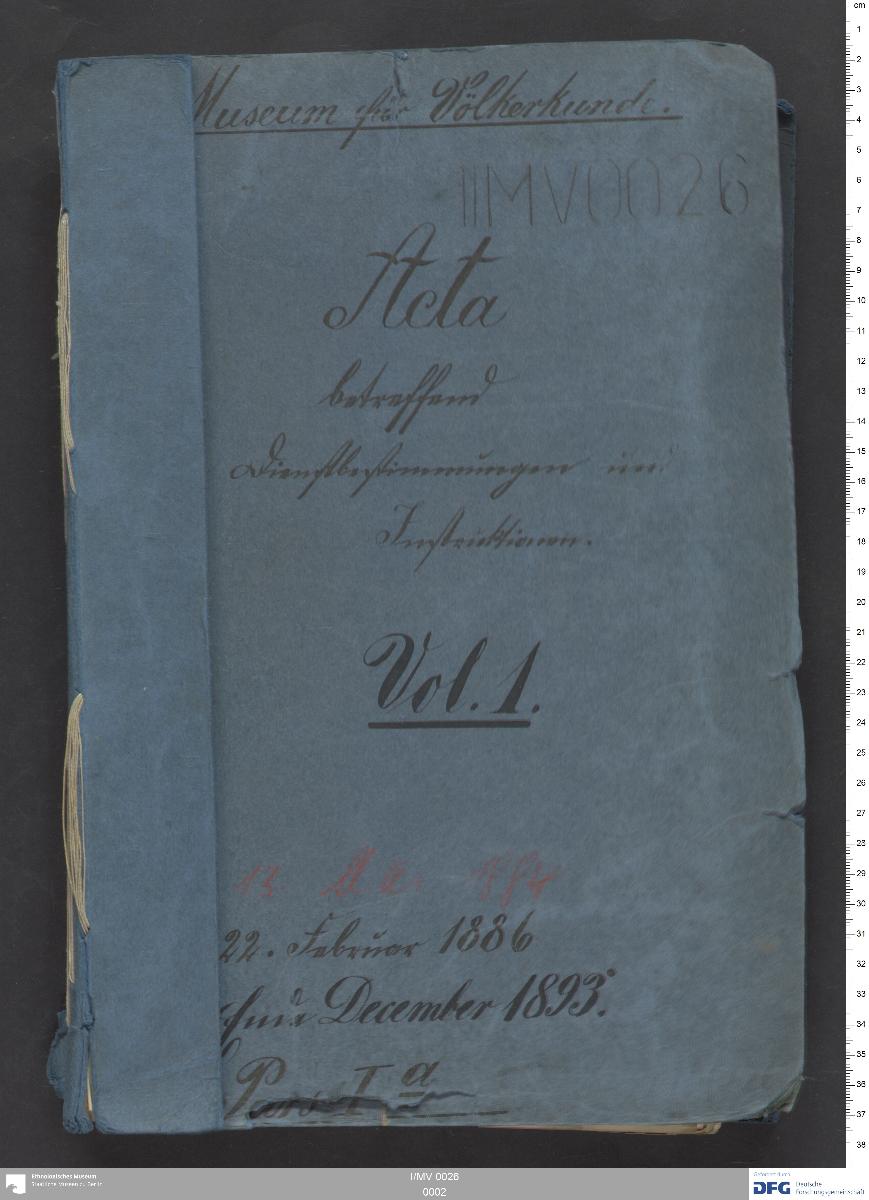 Museum für Völkerkunde.
I/MV 0026
Acta
betreffend
Dienstbestimmungen und
Instruktionen.
Vol. 1.
13
22. Februar 1886
Ende December 1893.
Pars I a
cm
1
2
3
4
5
6
7
8
9
10
11
12
13
14
15
16
17
18
19
20
21
22
23
24
25
26
27
28
29
30
31
32
33
34
35
36
37
38
Ethnologisches Museum
Staatliche Museen zu Berlin
I/MV 0026
0002
Gefördert durch
DFG Deutsche
Forschungsgemeinschaft